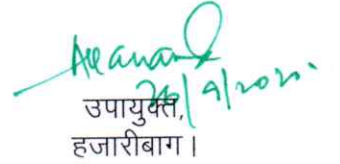 26/9/2020.
उपायुक्त,
हजारीबाग।